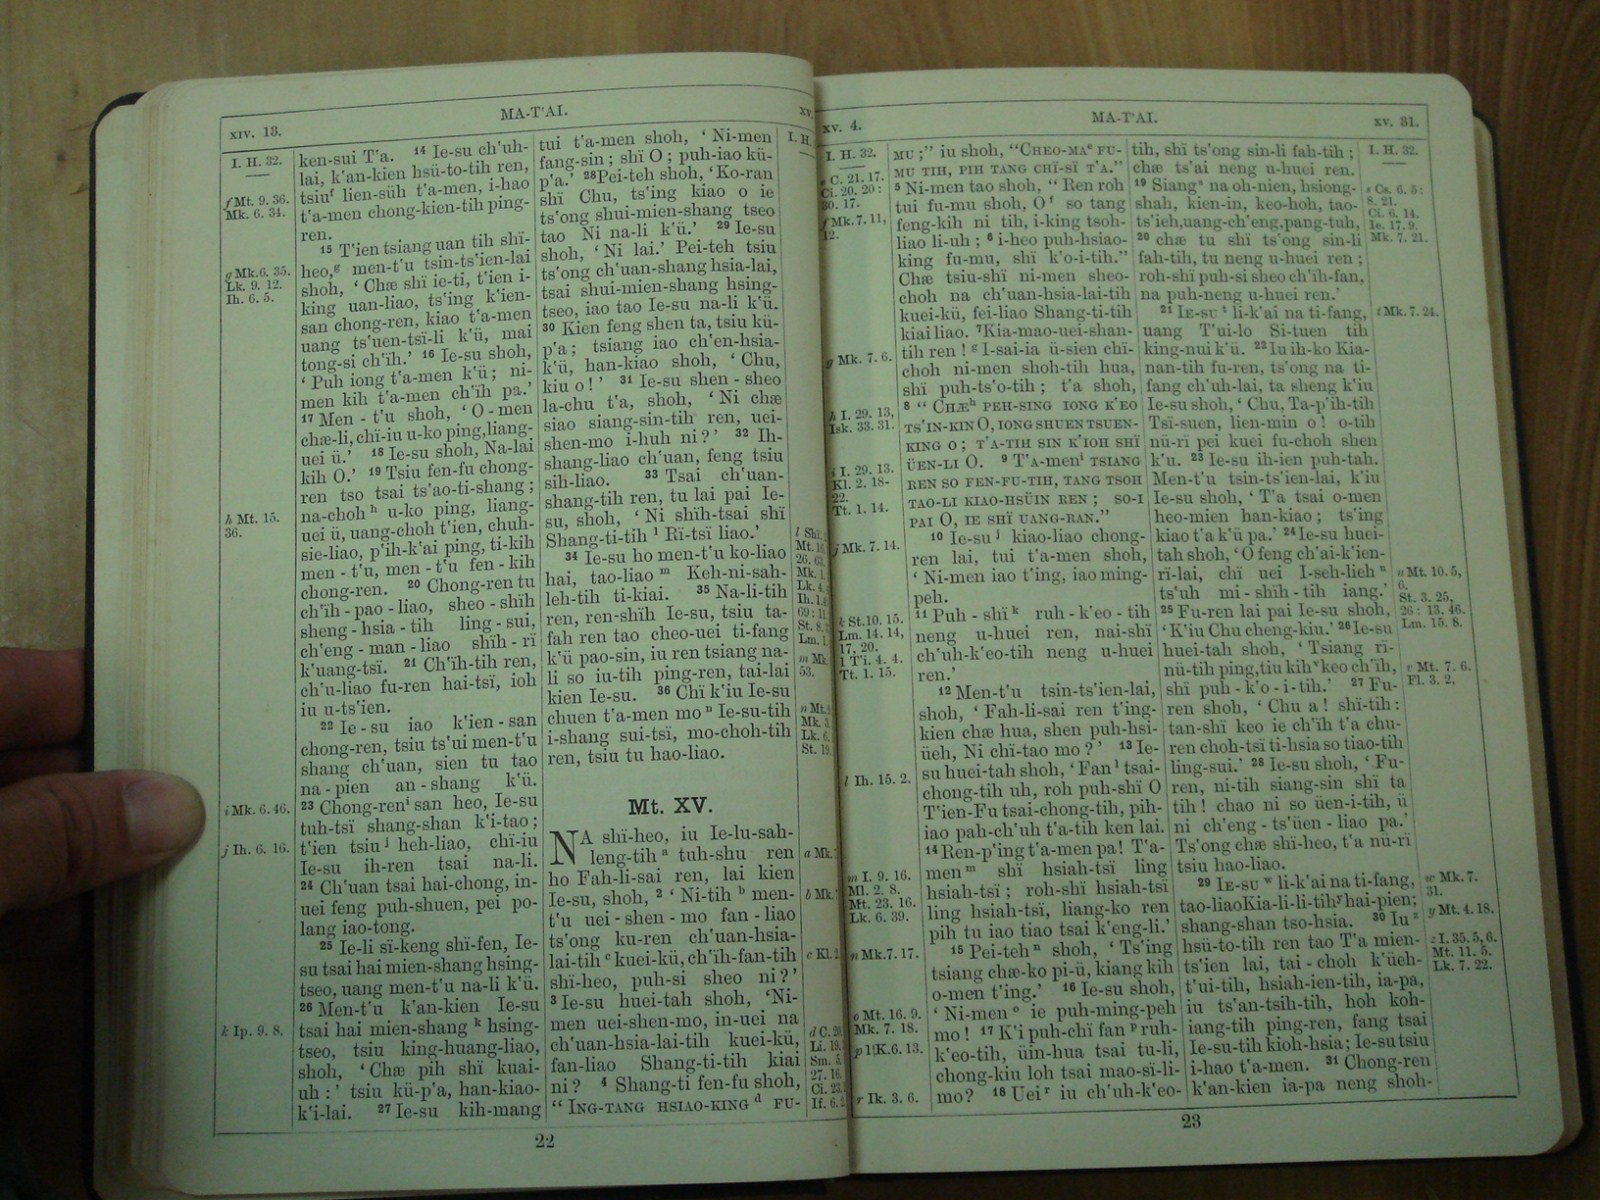 MA-T'AI.
xiv. 13.
I. H. 32.
f Mt. 9. 36.
Mk. 6. 34.
g Mk. 6. 35.
Lk. 9. 12.
Ih. 6. 5.
h Mt. 15.
36.
i Mk. 6. 46.
j Ih. 6. 16.
k Ip. 9. 8.
ken-sui T'a. 14 Ie-su ch'uh-
lai, k'an-kien hsü-to-tih ren,
tsiu f lien-süh t'a-men, i-hao
t'a-men chong-kien-tih ping-
ren.
15 T'ien tsiang uan tih shï-
heo, g men-t'u tsin-ts'ien-lai
shoh, ‘ Chæ shï ie-ti, t'ien i-
king uan-liao, ts'ing k'ien-
san chong-ren, kiao t'a-men
uang ts'uen-tsï-li k'ü, mai
tong-si ch'ïh.’ 16 Ie-su shoh,
‘ Puh iong t'a-men k'ü; ni-
men kih t'a-men ch'ïh pa.’
17 Men - t'u shoh, ‘ O - men
chæ-li, chï-iu u-ko ping, liang-
uei ü.’ 18 Ie-su shoh, Na-lai
kih O.’ 19 Tsiu fen-fu chong-
ren tso tsai ts'ao-ti-shang ;
na-choh h u-ko ping, liang-
uei ü, uang-choh t'ien, chuh-
sie-liao, p'ih-k'ai ping, ti-kih
men - t'u, men - t'u fen - kih
chong-ren. 20 Chong-ren tu
ch'ïh - pao - liao, sheo - shïh
sheng - hsia - tih ling - sui,
ch'eng - man - liao shïh - rï
k'uang-tsï. 21 Ch'ïh-tih ren,
ch'u-liao fu-ren hai-tsï, ioh
iu u-ts'ien.
22 Ie - su iao k'ien - san
chong-ren, tsiu ts'ui men-t'u
shang ch'uan, sien tu tao
na - pien an - shang k'ü.
23 Chong-ren i san heo, Ie-su
tuh-tsï shang-shan k'i-tao ;
t'ien tsiu j heh-liao, chï-iu
Ie-su ih-ren tsai na-li.
24 Ch'uan tsai hai-chong, in-
uei feng puh-shuen, pei po-
lang iao-tong.
25 Ie-li sï-keng shï-fen, Ie-
su tsai hai mien-shang hsing-
tseo, uang men-t'u na-li k'ü.
26 Men-t'u k'an-kien Ie-su
tsai hai mien-shang k hsing-
tseo, tsiu king-huang-liao,
shoh, ‘ Chæ pih shï kuai-
uh : ’ tsiu kü-p'a, han-kiao-
k'i-lai. 27 Ie-su kih-mang
tui t'a-men shoh, ‘ Ni-men
fang-sin ; shï O ; puh-iao kü-
p'a.’ 28 Pei-teh shoh, ‘ Ko-ran
shï Chu, ts'ing kiao o ie
ts'ong shui-mien-shang tseo
tao Ni na-li k'ü.’ 29 Ie-su
shoh, ‘ Ni lai.’ Pei-teh tsiu
ts'ong ch'uan-shang hsia-lai,
tsai shui-mien-shang hsing-
tseo, iao tao Ie-su na-li k'ü.
30 Kien feng shen ta, tsiu kü-
p'a ; tsiang iao ch'en-hsia-
k'ü, han-kiao shoh, ‘ Chu,
kiu o ! ’ 31 Ie-su shen - sheo
la-chu t'a, shoh, ‘ Ni chæ
siao siang-sin-tih ren, uei-
shen-mo i-huh ni ? ’ 32 Ih-
shang-liao ch'uan, feng tsiu
sih-liao. 33 Tsai ch'uan-
shang-tih ren, tu lai pai Ie-
su, shoh, ‘ Ni shïh-tsai shï
Shang-ti-tih l Rï-tsï liao.’
34 Ie-su ho men-t'u ko-liao
hai, tao-liao m Keh-ni-sah-
leh-tih ti-kiai. 35 Na-li-tih
ren, ren-shïh Ie-su, tsiu ta-
fah ren tao cheo-uei ti-fang
k'ü pao-sin, iu ren tsiang na-
li so iu-tih ping-ren, tai-lai
kien Ie-su. 36 Chï k'iu Ie-su
chuen t'a-men mo n Ie-su-tih
i-shang sui-tsï, mo-choh-tih
ren, tsiu tu hao-liao.
Mt. XV.
NA shï-heo, iu Ie-lu-sah-
leng-tih a tuh-shu ren
ho Fah-li-sai ren, lai kien
Ie-su, shoh, 2 ‘ Ni-tih b men-
t'u uei - shen - mo fan - liao
ts'ong ku-ren ch'uan-hsia-
lai-tih c kuei-kü, ch'ïh-fan-tih
shï-heo, puh-si sheo ni ? ’
3 Ie-su huei-tah shoh, ‘Ni-
men uei-shen-mo, in-uei na
ch'uan-hsia-lai-tih kuei-kü,
fan-liao Shang-ti-tih kiai
ni ? 4 Shang-ti fen-fu shoh,
“ ING-TANG HSIAO-KING d FU-
xv.
I. H.
l Shï.
Mt.
26. 63.
Mk.
Lk. 4.
Ih. 1.
69 : 11
St. 8.
Lm. 1.
m Mk.
53.
n Mt.
Mk. 3.
Lk. 6.
St. 19.
a Mk.
b Mk.
c Kl. 2.
d C. 20.
Li. 19.
Sm. 5.
27. 16.
Ci. 23.
If. 6. 2.
22
xv. 4.
MA-T'AI.
xv. 31.
I. H. 32.
e C. 21. 17.
Ci. 20. 20 :
30. 17.
f Mk. 7. 11,
12.
g Mk. 7. 6.
h I. 29. 13,
Isk. 33. 31.
i I. 29. 13.
Kl. 2. 18-
22.
Tt. 1. 14.
j Mk. 7. 14.
k St. 10. 15.
Lm. 14. 14,
17, 20.
1 T'i. 4. 4.
Tt. 1. 15.
l Ih. 15. 2.
m I. 9. 16.
Ml. 2. 8.
Mt. 23. 16.
Lk. 6. 39.
n Mk. 7. 17.
o Mt. 16. 9.
Mk. 7. 18.
p 1 K. 6. 13.
r Ik. 3. 6.
MU ;” iu shoh, “CHEO-MA e FU-
MU TIH, PIH TANG CHÏ-SÏ T'A.”
5 Ni-men tao shoh, “ Ren roh
tui fu-mu shoh, O f so tang
feng-kih ni tih, i-king tsoh-
liao li-uh ; 6 i-heo puh-hsiao-
king fu-mu, shï k'o-i-tih.”
Chæ tsiu-shï ni-men sheo-
choh na ch'uan-hsia-lai-tih
kuei-kü, fei-liao Shang-ti-tih
kiai liao. 7 Kia-mao-uei-shan-
tih ren ! g I-sai-ia ü-sien chï-
choh ni-men shoh-tih hua,
shï puh-ts'o-tih ; t'a shoh,
8 “ CHÆ h PEH-SING IONG K'EO
TS'IN-KIN O, IONG SHUEN TSUEN-
KING O ; T'A-TIH SIN K'IOH SHÏ
ÜEN-LI O. 9 T'A-MEN i TSIANG
REN SO FEN-FU-TIH, TANG TSOH
TAO-LI KIAO-HSÜIN REN ; SO-I
PAI O, IE SHÏ UANG-RAN.”
10 Ie-su j kiao-liao chong-
ren lai, tui t'a-men shoh,
‘ Ni-men iao t'ing, iao ming-
peh.
11 Puh - shï k ruh - k'eo - tih
neng u-huei ren, nai-shï
ch'uh-k'eo-tih neng u-huei
ren.’
12 Men-t'u tsin-ts'ien-lai,
shoh, ‘ Fah-li-sai ren t'ing-
kien chæ hua, shen puh-hsi-
üeh, Ni chï-tao mo ? ’ 13 Ie-
su huei-tah shoh, ‘ Fan l tsai-
chong-tih uh, roh puh-shï O
T'ien-Fu tsai-chong-tih, pih-
iao pah-ch'uh t'a-tih ken lai.
14 Ren-p'ing t'a-men pa ! T'a-
men m shï hsiah-tsï ling
hsiah-tsï ; roh-shï hsiah-tsï
ling hsiah-tsï, liang-ko ren
pih tu iao tiao tsai k'eng-li.’
15 Pei-teh n shoh, ‘ Ts'ing
tsiang chæ-ko pi-ü, kiang kih
o-men t'ing.’ 16 Ie-su shoh,
‘ Ni-men o ie puh-ming-peh
mo ! 17 K'i puh-chï fan p ruh-
k'eo-tih, üin-hua tsai tu-li,
chong-kiu loh tsai mao-sï-li-
mo ? 18 Uei r iu ch'uh-k'eo-
tih, shï ts'ong sin-li fah-tih ;
chæ ts'ai neng u-huei ren.
19 Siang s na oh-nien, hsiong-
shah, kien-in, keo-hoh, tao-
ts'ieh, uang-ch'eng, pang-tuh,
20 chæ tu shï ts'ong sin-li
fah-tih, tu neng u-huei ren ;
roh-shï puh-si sheo ch'ïh-fan,
na puh-neng u-huei ren.’
21 IE-SU t li-k'ai na ti-fang,
uang T'ui-lo Si-tuen tih
king-nui k'ü. 22 Iu ih-ko Kia-
nan-tih fu-ren, ts'ong na ti-
fang ch'uh-lai, ta sheng k'iu
Ie-su shoh, ‘ Chu, Ta-p'ih-tih
Tsï-suen, lien-min o ! o-tih
nü-rï pei kuei fu-choh shen
k'u. 23 Ie-su ih-ien puh-tah.
Men-t'u tsin-ts'ien-lai, k'iu
Ie-su shoh, ‘ T'a tsai o-men
heo-mien han-kiao ; ts'ing
kiao t'a k'ü pa.’ 24 Ie-su huei-
tah shoh, ‘ O feng ch'ai-k'ien-
rï-lai, chï uei I-seh-lieh u
ts'uh mi - shïh - tih iang.’
25 Fu-ren lai pai Ie-su shoh,
‘ K'iu Chu cheng-kiu.’ 26 Ie-su
huei-tah shoh, ‘ Tsiang rï-
nü-tih ping, tiu kih v keo ch'ïh,
shï puh - k'o - i - tih.’ 27 Fu-
ren shoh, ‘ Chu a ! shï-tih :
tan-shï keo ie ch'ïh t'a chu-
ren choh-tsï ti-hsia so tiao-tih
ling-sui.’ 28 Ie-su shoh, ‘ Fu-
ren, ni-tih siang-sin shï ta
tih ! chao ni so üen-i-tih, ü
ni ch'eng - ts'üen - liao pa.’
Ts'ong chæ shï-heo, t'a nü-rï
tsiu hao-liao.
29 IE-SU w li-k'ai na ti-fang,
tao-liao Kia-li-li-tih y hai-pien ;
shang-shan tso-hsia. 30 Iu z
hsü-to-tih ren tao T'a mien-
ts'ien lai, tai - choh k'üeh-
t'ui-tih, hsiah-ien-tih, ia-pa,
iu ts'an-tsih-tih, hoh koh-
iang-tih ping-ren, fang tsai
Ie-su-tih kioh-hsia ; Ie-su tsiu
i-hao t'a-men. 31 Chong-ren
k'an-kien ia-pa neng shoh-
I. H. 32.
s Cs. 6. 5 :
8. 21.
Ci. 6. 14.
Ie. 17. 9.
Mk. 7. 21.
t Mk. 7. 24.
u Mt. 10. 5,
6.
St. 3. 25,
26 : 13. 46.
Lm. 15. 8.
v Mt. 7. 6.
Fl. 3. 2.
w Mk. 7.
31.
y Mt. 4. 18.
z I. 35. 5, 6.
Mt. 11. 5.
Lk. 7. 22.
23